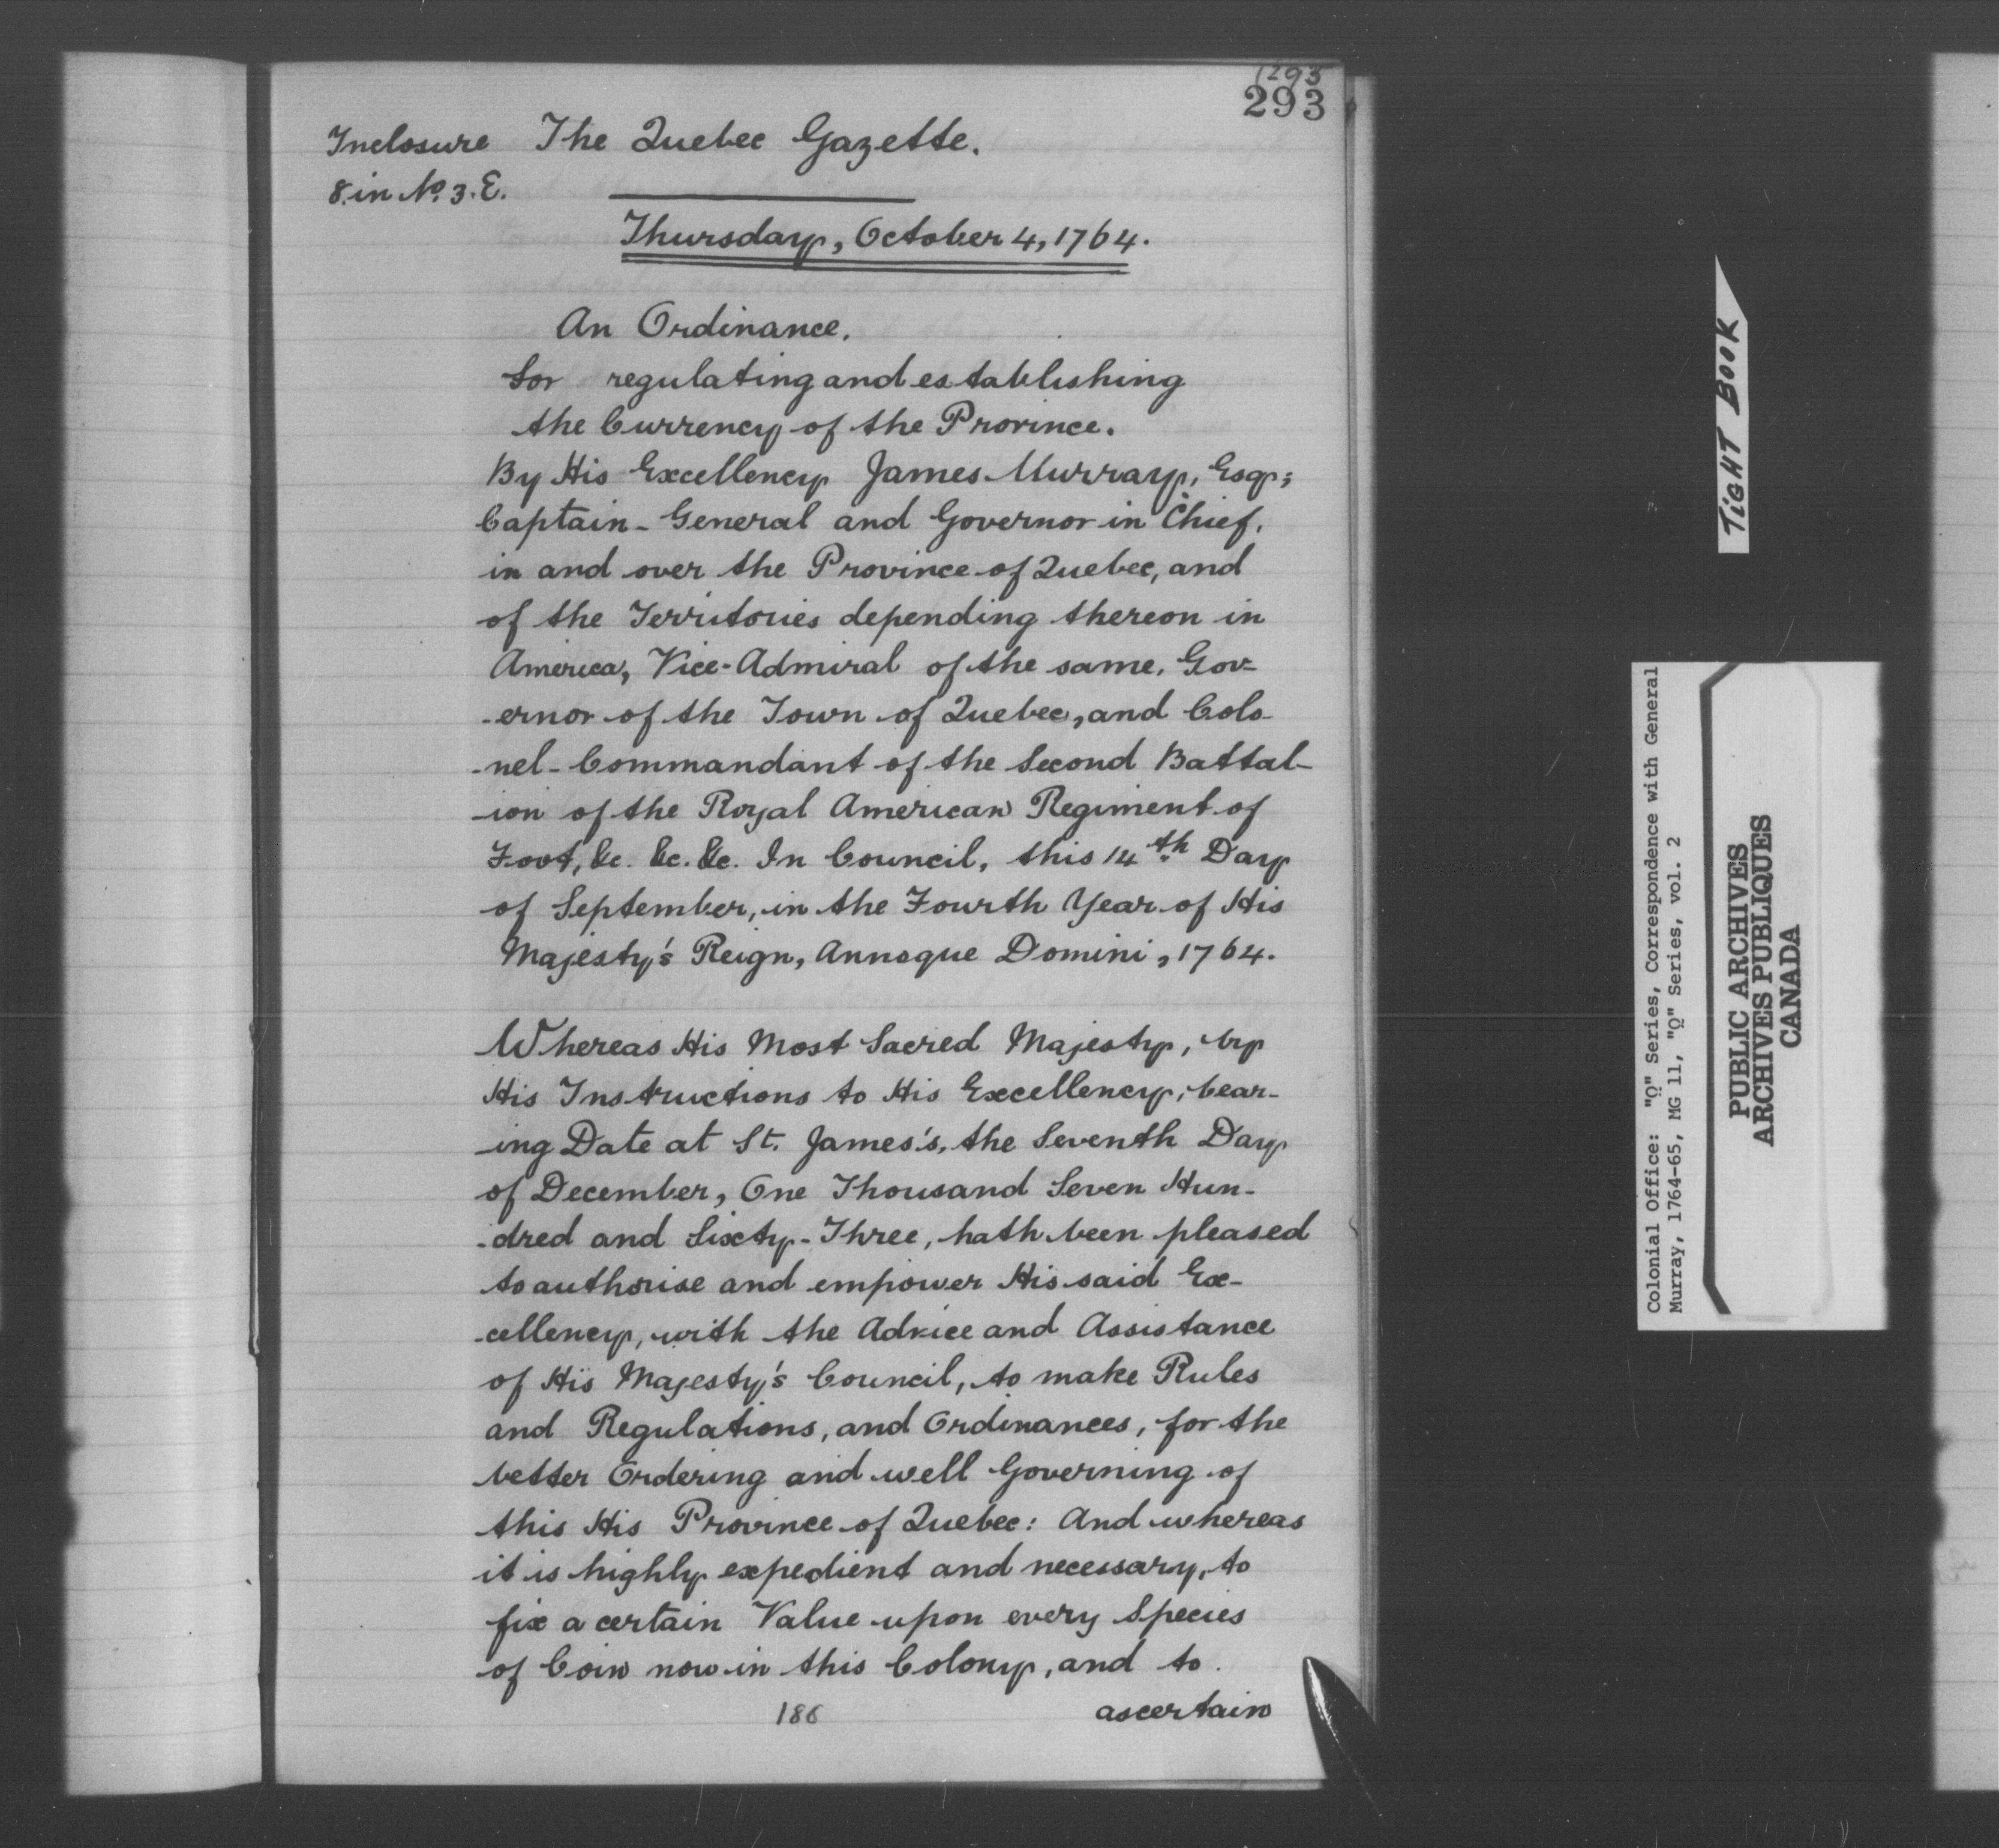 293
293
Inclosure The Quebec Gazette.
8. in No. 3. E.
Thursday, October 4, 1764.
An Ordinance.
for regulating and establishing
the Currency of the Province.
By His Excellency James Murray, Esq;
Captain-General and Governor in Chief,
in and over the Province of Quebec, and
of the Territories depending thereon in
America, Vice-Admiral of the same, Gov-
-ernor of the Town of Quebec, and Colo-
-nel-Commandant of the Second Battal-
-ion of the Royal American Regiment of
Foot, &c. &c. &c. In Council, this 14th Day
of September, in the Fourth Year of His
Majesty's Reign, Annoque Domini, 1764.
Whereas His Most Sacred Majesty, by
His Instructions to His Excellency, bear-
-ing Date at St. James's, the Seventh Day
of December, One Thousand Seven Hun-
-dred and Sixty-Three, hath been pleased
to authorise and empower His said Ex-
-cellency, with the Advice and Assistance
of His Majesty's Council, to make Rules
and Regulations, and Ordinances, for the
better Ordering and well Governing of
this His Province of Quebec: And whereas
it is highly expedient and necessary, to
fix a certain Value upon every Species
of Coin now in this Colony, and to
186
ascertain
TIGHT BOOK
Colonial Office: "Q" Series, Correspondence with General
Murray, 1764-65, MG 11, "Q" Series, vol. 2
PUBLIC ARCHIVES
ARCHIVES PUBLIQUES
CANADA